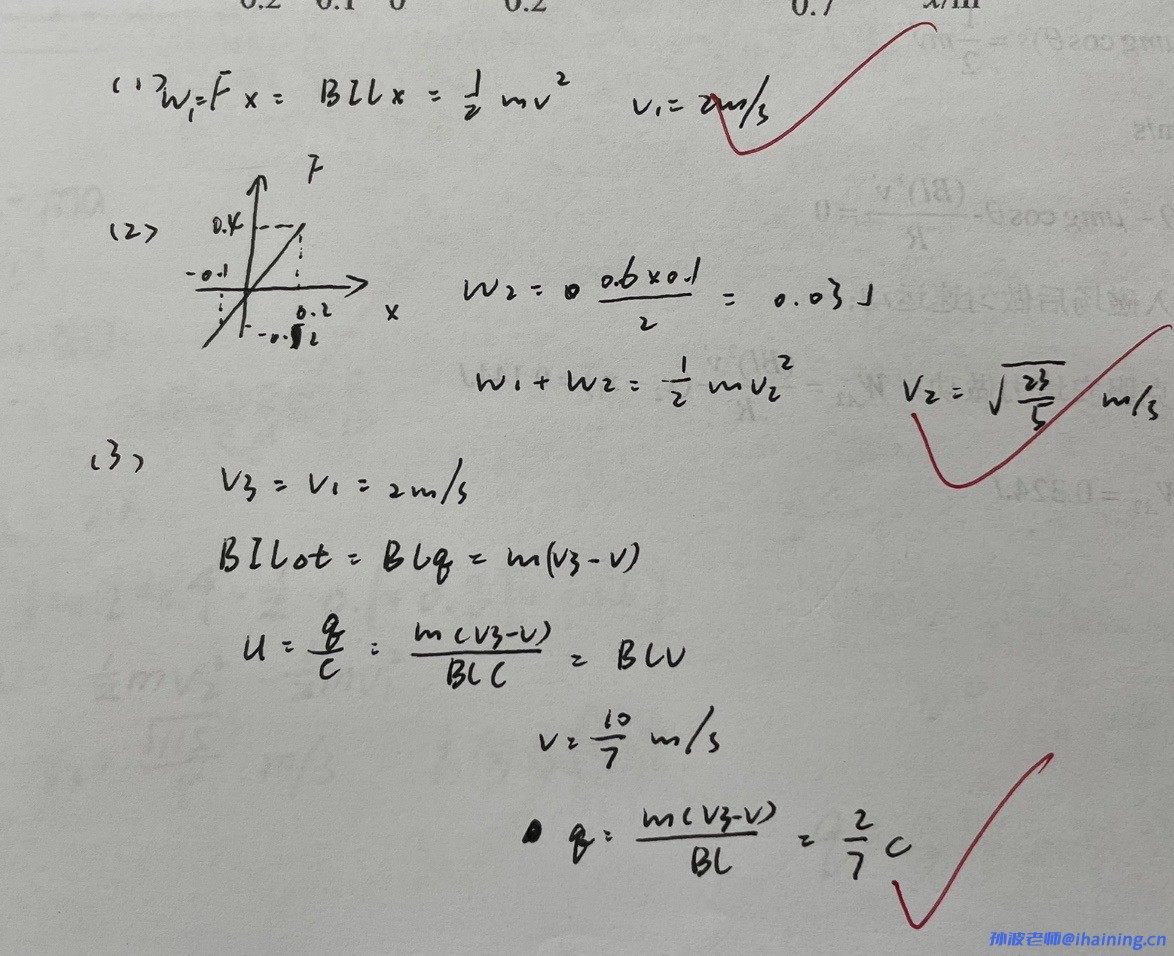 0.2 0.1 0 0.2 0.7 x/m
(1) W₁=Fx = BILx = 1/2 mv² v₁= 2m/s
F
(2) 0.4
-0.1
0.2 x
W2 = 0.6×0.1/2 = 0.03J
W1 + W2 = 1/2 mv₂² V2 = √(23/5) m/s
(3)
V3 = V1 = 2m/s
BIL△t = BLq = m(V3-V)
U = q/C = m(V3-V)/BLC = BLV
V= 10/7 m/s
q= m(V3-V)/BL = 2/7 C
孙波老师@ihaining.cn